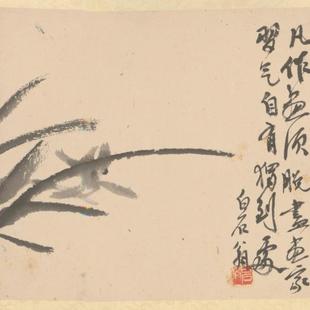 凡作画须脱尽画家
习气自有独到处
白石翁